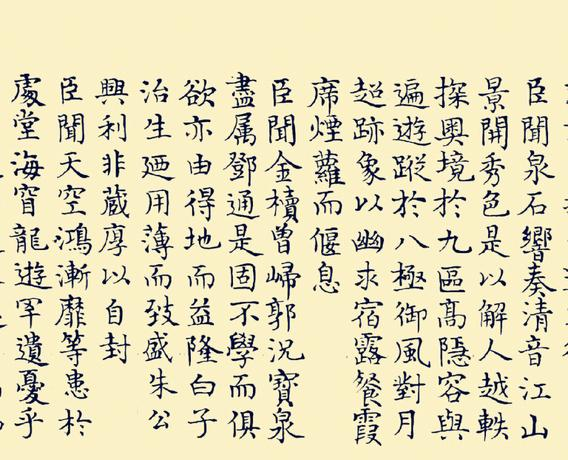 臣聞泉石響奏清音江山
景開秀色是以解人越軼
探奧境於九區高隱容與
遍遊蹤於八極御風對月
超跡象以幽求宿露餐霞
席煙蘿而偃息
臣聞金櫝曽歸郭況寶泉
盡属鄧通是固不學而俱
欲亦由得地而益隆白子
治生廼用薄而致盛朱公
興利非蔵厚以自封
臣聞天空鴻漸靡等患於
處堂海窅龍遊罕遺憂乎